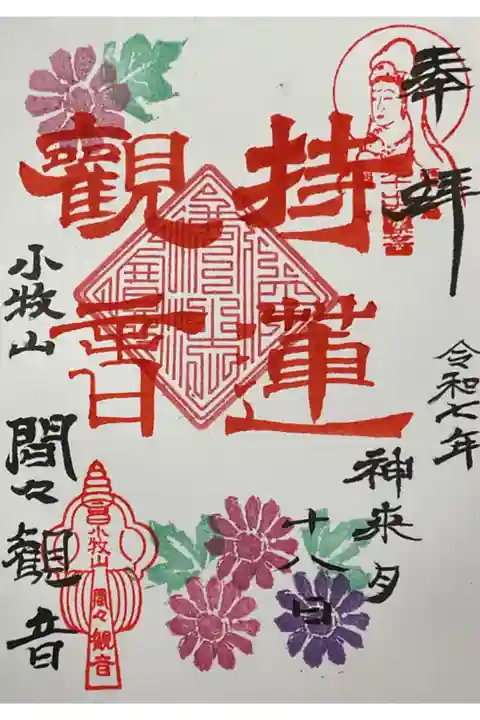 奉拝
持蓮
觀音
令和七年
神来月
十八日
小牧山
間々観音
小牧山
間々観音